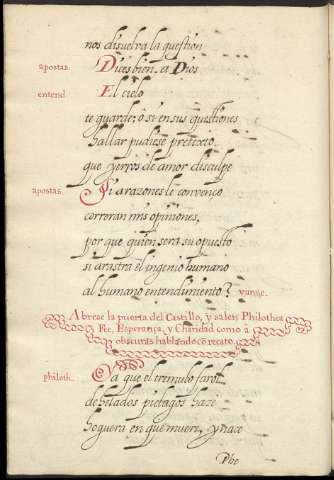 nos disuelva la question
apostas. Dices bien. a Dios
entend. El cielo
te guarde; ô si en sus questiones
hallar pudiese pretexto
que yerros de amor disculpe
apostas. Si a razones le convenço
correran mis opiniones,
por que quien sera su opuesto
si arastra el ingenio humano
al humano entendimiento? vanse.
Abrese la puerta del Castillo, y salen Philothea
Fee, Esperança, y Charidad como â
obscuras hablando cõ recato.
philoth. Ya que el tremulo farol
de helados pielagos haze
hoguera en que muere, y naçe
Phe